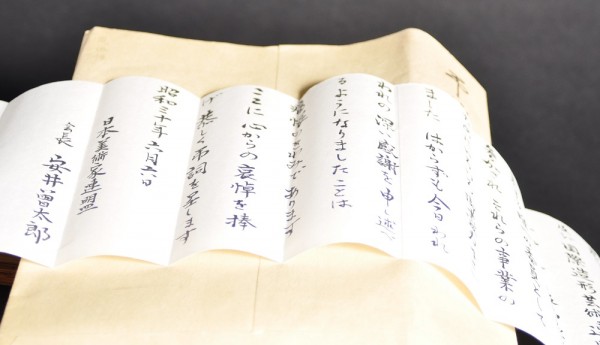 国際造形芸術連
なされ それらの事業の
ました はからずも今日われ
われの深い感謝を申し述べ
るようになりましたことは
のきわみであります
ここに心からの哀悼を捧
げ 恭しく弔詞を呈します
昭和三十年六月六日
日本美術家連盟
会長 安井曾太郎